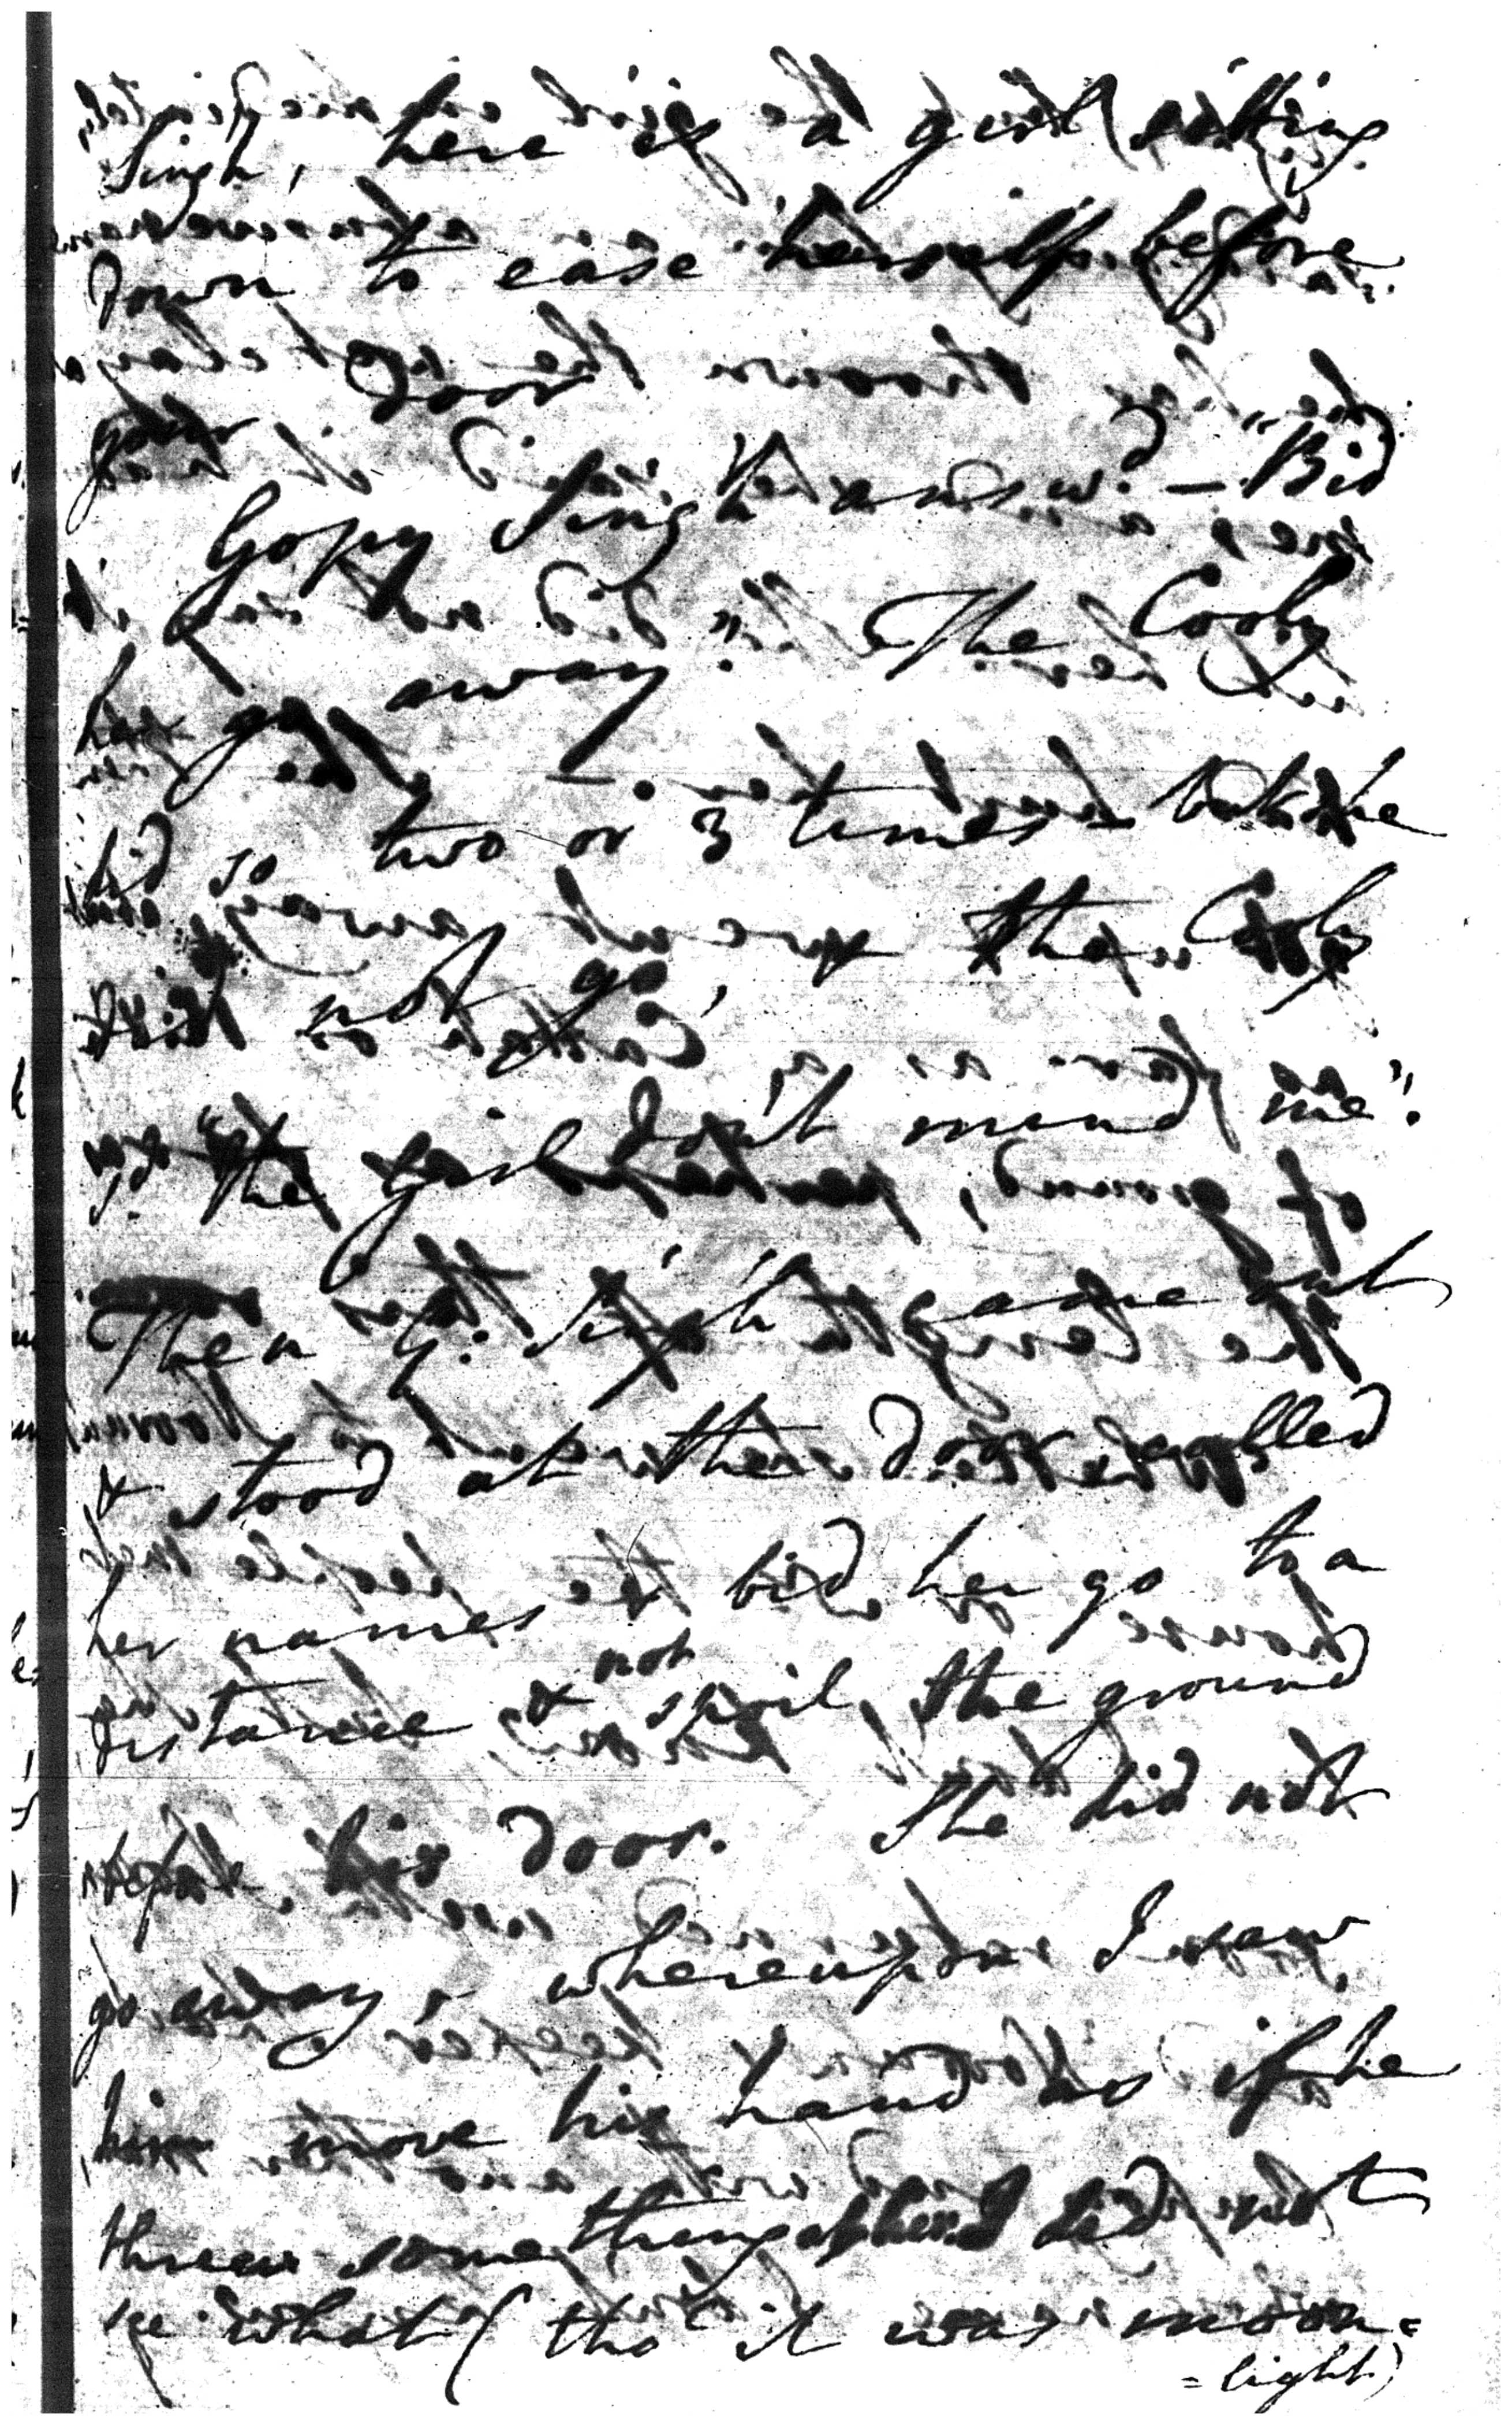 Singh, here is a girl sitting
down to ease herself before
your door
Gopy Singh answd. — "Bid
her go away." The Cooly
did so two or 3 times — but she
did not go, then Cooly
sd. "The girl don't mind me".
Then G: Singh came out
& stood at the door called
her names & bid her go to a
distance & not spoil the ground
before his door. She did not
go away, whereupon I saw
him move his hand as if he
threw something I did not
see what (tho' it was moon=
=light)